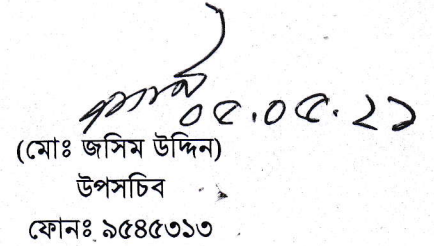 ০৫.০৫.২১
(মোঃ জসিম উদ্দিন)
উপসচিব
ফোনঃ ৯৫৪৫৩১৩